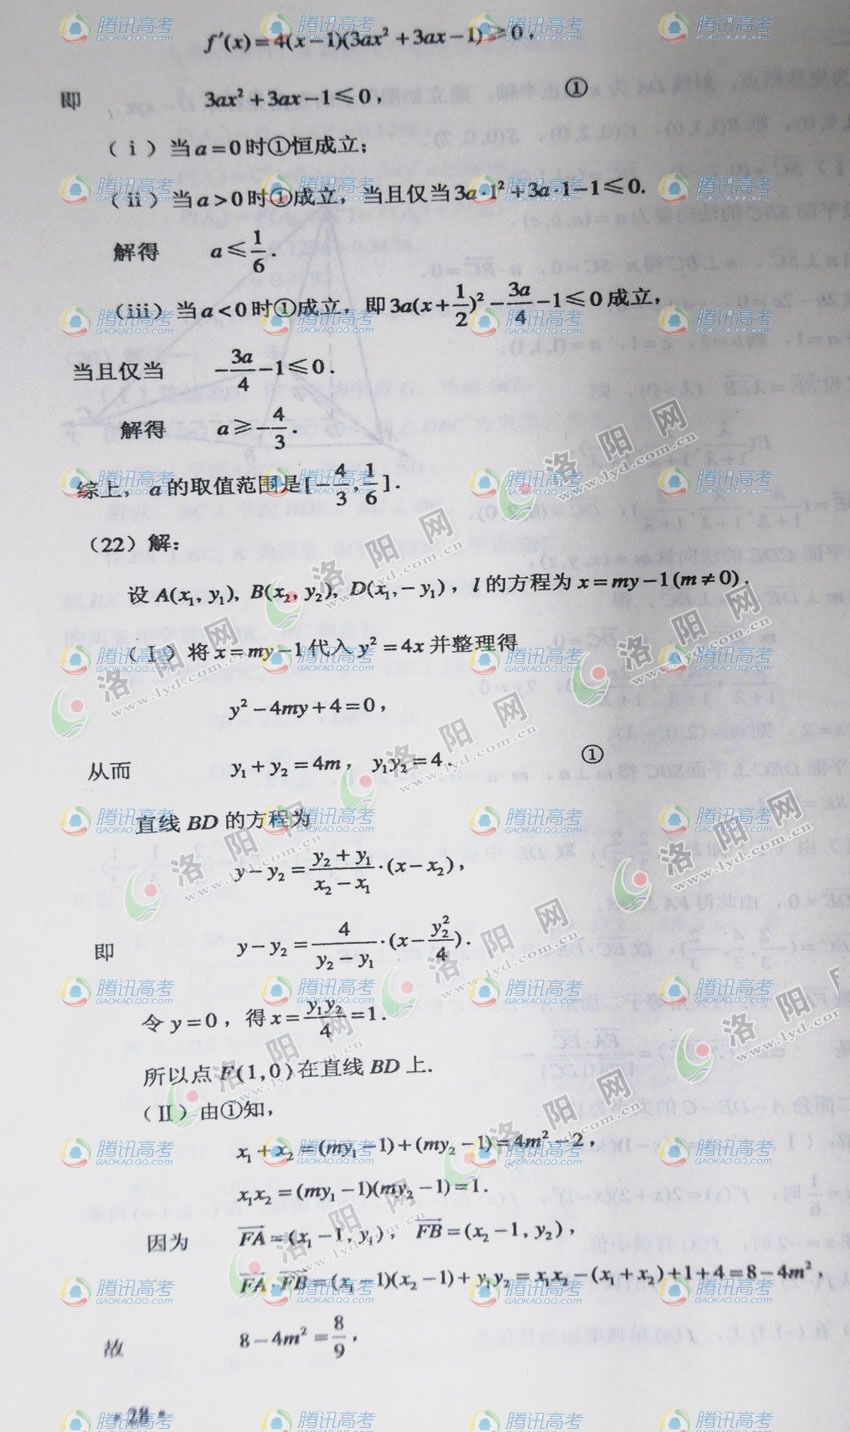 f′(x)=4(x−1)(3ax²+3ax−1)≥0,
即 3ax²+3ax−1≤0, ①
(ⅰ)当a=0时①恒成立;
(ⅱ)当a>0时①成立，当且仅当3a·1²+3a·1−1≤0.
解得 a≤1/6.
(ⅲ)当a<0时①成立，即3a(x+1/2)²−3a/4−1≤0成立，
当且仅当 −3a/4−1≤0.
解得 a≥−4/3.
综上，a的取值范围是[−4/3,1/6].
(22)解:
设A(x₁,y₁), B(x₂,y₂), D(x₁,−y₁)，l的方程为x=my−1(m≠0).
(Ⅰ)将x=my−1代入y²=4x并整理得
y²−4my+4=0，
从而 y₁+y₂=4m，y₁y₂=4. ①
直线BD的方程为
y−y₂=(y₂+y₁)/(x₂−x₁)·(x−x₂)，
即 y−y₂=4/(y₂−y₁)·(x−y₂²/4).
令y=0，得x=y₁y₂/4=1.
所以点F(1,0)在直线BD上.
(Ⅱ)由①知，
x₁+x₂=(my₁−1)+(my₂−1)=4m²−2，
x₁x₂=(my₁−1)(my₂−1)=1.
因为 FA=(x₁−1,y₁)，FB=(x₂−1,y₂)，
FA·FB=(x₁−1)(x₂−1)+y₁y₂=x₁x₂−(x₁+x₂)+1+4=8−4m²，
故 8−4m²=8/9，
·28·
腾讯高考
GAOKAO.QQ.COM
洛阳网
www.lyd.com.cn